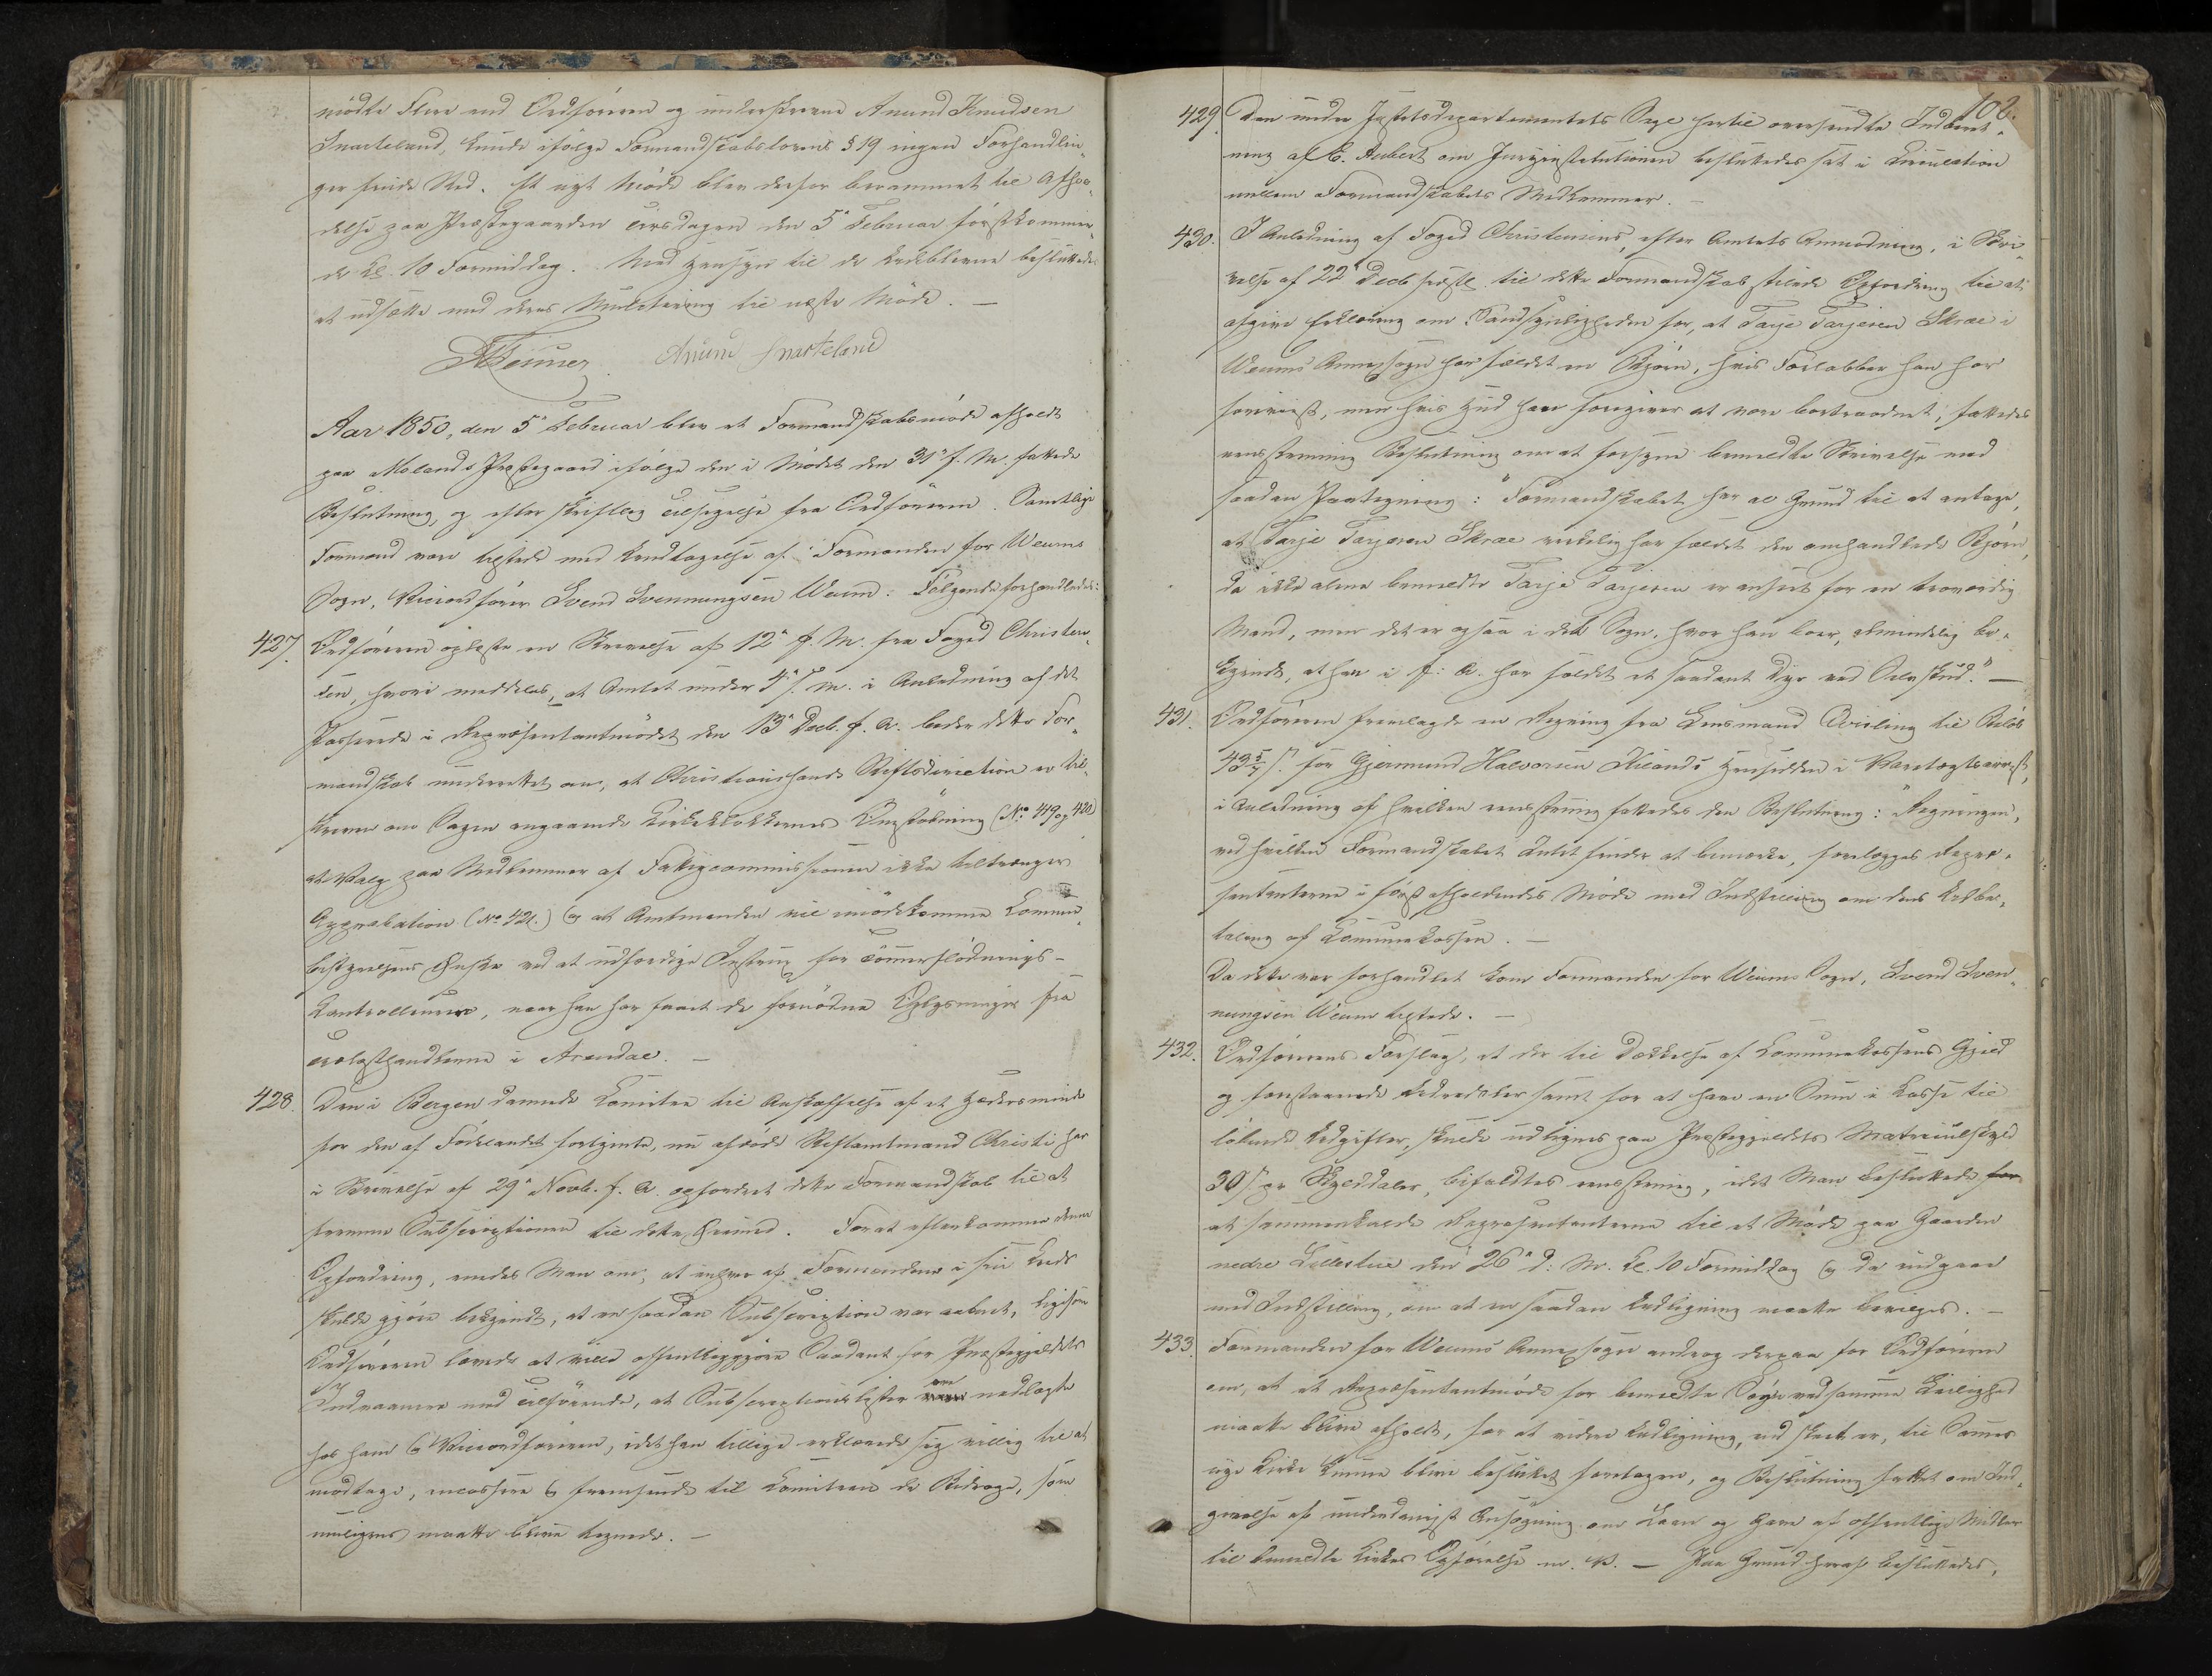 mödte Flere end Ordföreren og underskrevne Anund Knudsen
Snarteland, kunde ifölge Formandskabslovens § 19 ingen Forhandlin-
ger finde Sted. Et nyt Möde blev derfor berammet til Afhol-
delse paa Præstegaarden Tirsdagen den 5te Februar förstkommen-
de Kl. 10 Formiddag. Med Hensyn til de Udeblevne besluttedes
at udsætte med deres Mulctering til næste Möde. —
Anund Snarteland
Aar 1850, den 5te Februar blev et Formandskabsmöde afholdt
paa Molands Præstegaard ifölge den i Mödet den 31te f. M. fattede
Beslutning, og efter skriftlig Tilsigelse fra Ordföreren. Samtlige
Formænd vare tilstede med Undtagelse af: Formanden for Weums
Sogn, Viceordförer Svend Svennungsen Weum. Fölgende forhandledes:
427. Ordföreren oplæste en Skrivelse af 12te f. M. fra Foged Christen-
sen, hvori meddeles, at Amtet under 4de s. M. i Anledning af det
Passerede i Repræsentantmödet den 13de Decb. f. A. beder dette For-
mandskab underrettet om, at Christianssands Stiftsdirection er til-
skreven om Sagen angaaende Kirkeklokkernes Omstöbning (No 419 og 420)
at Valg paa Medlemmer af Fattigcommissionen ikke tiltrænger
Approbation (No 421.) og at Amtmanden vil imödekomme Commu-
bestyrelsens Önske ved at udfærdige Instrux for Tömmerflödnings-
Kontrolleurer, naar han har faaet de fornödne Oplysninger fra
Trælasthandlerne i Arendal. —
428. Den i Bergen dannede Comitee til Anskaffelse af et Hædersminde
for den af Födelandet fortjente, nu afdöde Stiftamtmand Christi har
i Skrivelse af 29de Novb. f. A. opfordret dette Formandskab til at
fremme Subscriptionen til dette Öiemed. For at efterkomme denne
Opfordring, enedes Man om, at enhver af Formændene i sin Kreds
skulde gjöre bekjendt, at en saadan Subscription var aabnet, ligesom
Ordföreren lovede at ville offentliggjöre Saadant for Præstegjeldets
Indvaanere med Tilföiende, at Subscriptionslister ere nedlagte
hos ham og Viceordföreren, idet han tillige erklærede sig villig til at
modtage, incassere og fremsende til Comiteen de Bidrage, som
muligens maatte blive tegnede. —
102.
429. Den under Justitsdepartementets Segl hertil oversendte Indberet-
ning af C. Aubert om Juryinstitutionen besluttedes sat i Circulation
mellem Formandskabets Medlemmer. —
430. I Anledning af Foged Christensens, efter Amtets Anmodning, i Skri-
velse af 22de Decb sidstl. til dette Formandskab stilede Opfordring til at
afgive Erklæring om Sandsynligheden for, at Tarje Tarjesen Skræe i
Weums Annexsogn har fældet en Björn, hvis Forlabber han har
foreviist, men hvis Hud han foregiver at være bortraadnet, fattedes
eensstemmig Beslutning om at forsyne bemeldte Skrivelse med
saadan Paategning: "Formandskabet har al Grund til at antage,
at Tarje Tarjesen Skræe virkelig har fældet den omhandlede Björn,
da ikke alene bemeldte Tarje Tarjesen er anseet for en troværdig
Mand, men det er ogsaa i det Sogn, hvor han boer, almindelig be-
kjendt, at han i f: A. har fældet et saadant Dyr ved Selvskud." —
431. Ordföreren fremlagde en Regning fra Lensmand Qvisling til Belöb
for Gjermund Halvorsen Kilands Hensidden i Varetægtsarrest,
i Anledning af hvilken eensstemmig fattedes den Beslutning: "Regningen,
ved hvilken Formandskabet Intet finder at bemærke, forelægges Repræ-
sentanterne i först afholdendes Möde med Indstilling om dens Udbe-
taling af Communekassen. —
Da dette var forhandlet kom Formanden for Weums Sogn, Svend Sven-
nungsen Weum tilstede. —
432. Ordförerens Forslag, at der til Dækkelse af Communekassens Gjeld
og forestaaende Udredsler samt for at have en Sum i Kasse til
löbende Udgifter, skulde udlignes paa Præstegjeldets Matriculskyld
30 s pr Skylddaler, bifaldtes eensstemmig, idet Man besluttede
at sammenkalde Repræsentanterne til et Möde paa Gaarden
nedre Lillestue den 26de d: M. Kl. 10 Formiddag og da indgaae
med Indstilling, om at en saadan Udligning maatte bevilges. —
433. Formanden for Weums Annexsogn androg derpaa for Ordföreren
om, at et Repræsentantmöde for bemeldte Sogn ved samme Leilighed
maatte blive afholdt, for at videre Udligning, end skeet er, til Sammes
nye Kirke kunne blive besluttet foretagen, og Beslutning fattet om Ind-
givelse af underdanigst Ansögning om Laan og Gave af offentlige Midler
til bemeldte Kirkes Opförelse m. V. — Paa Grund heraf besluttedes,